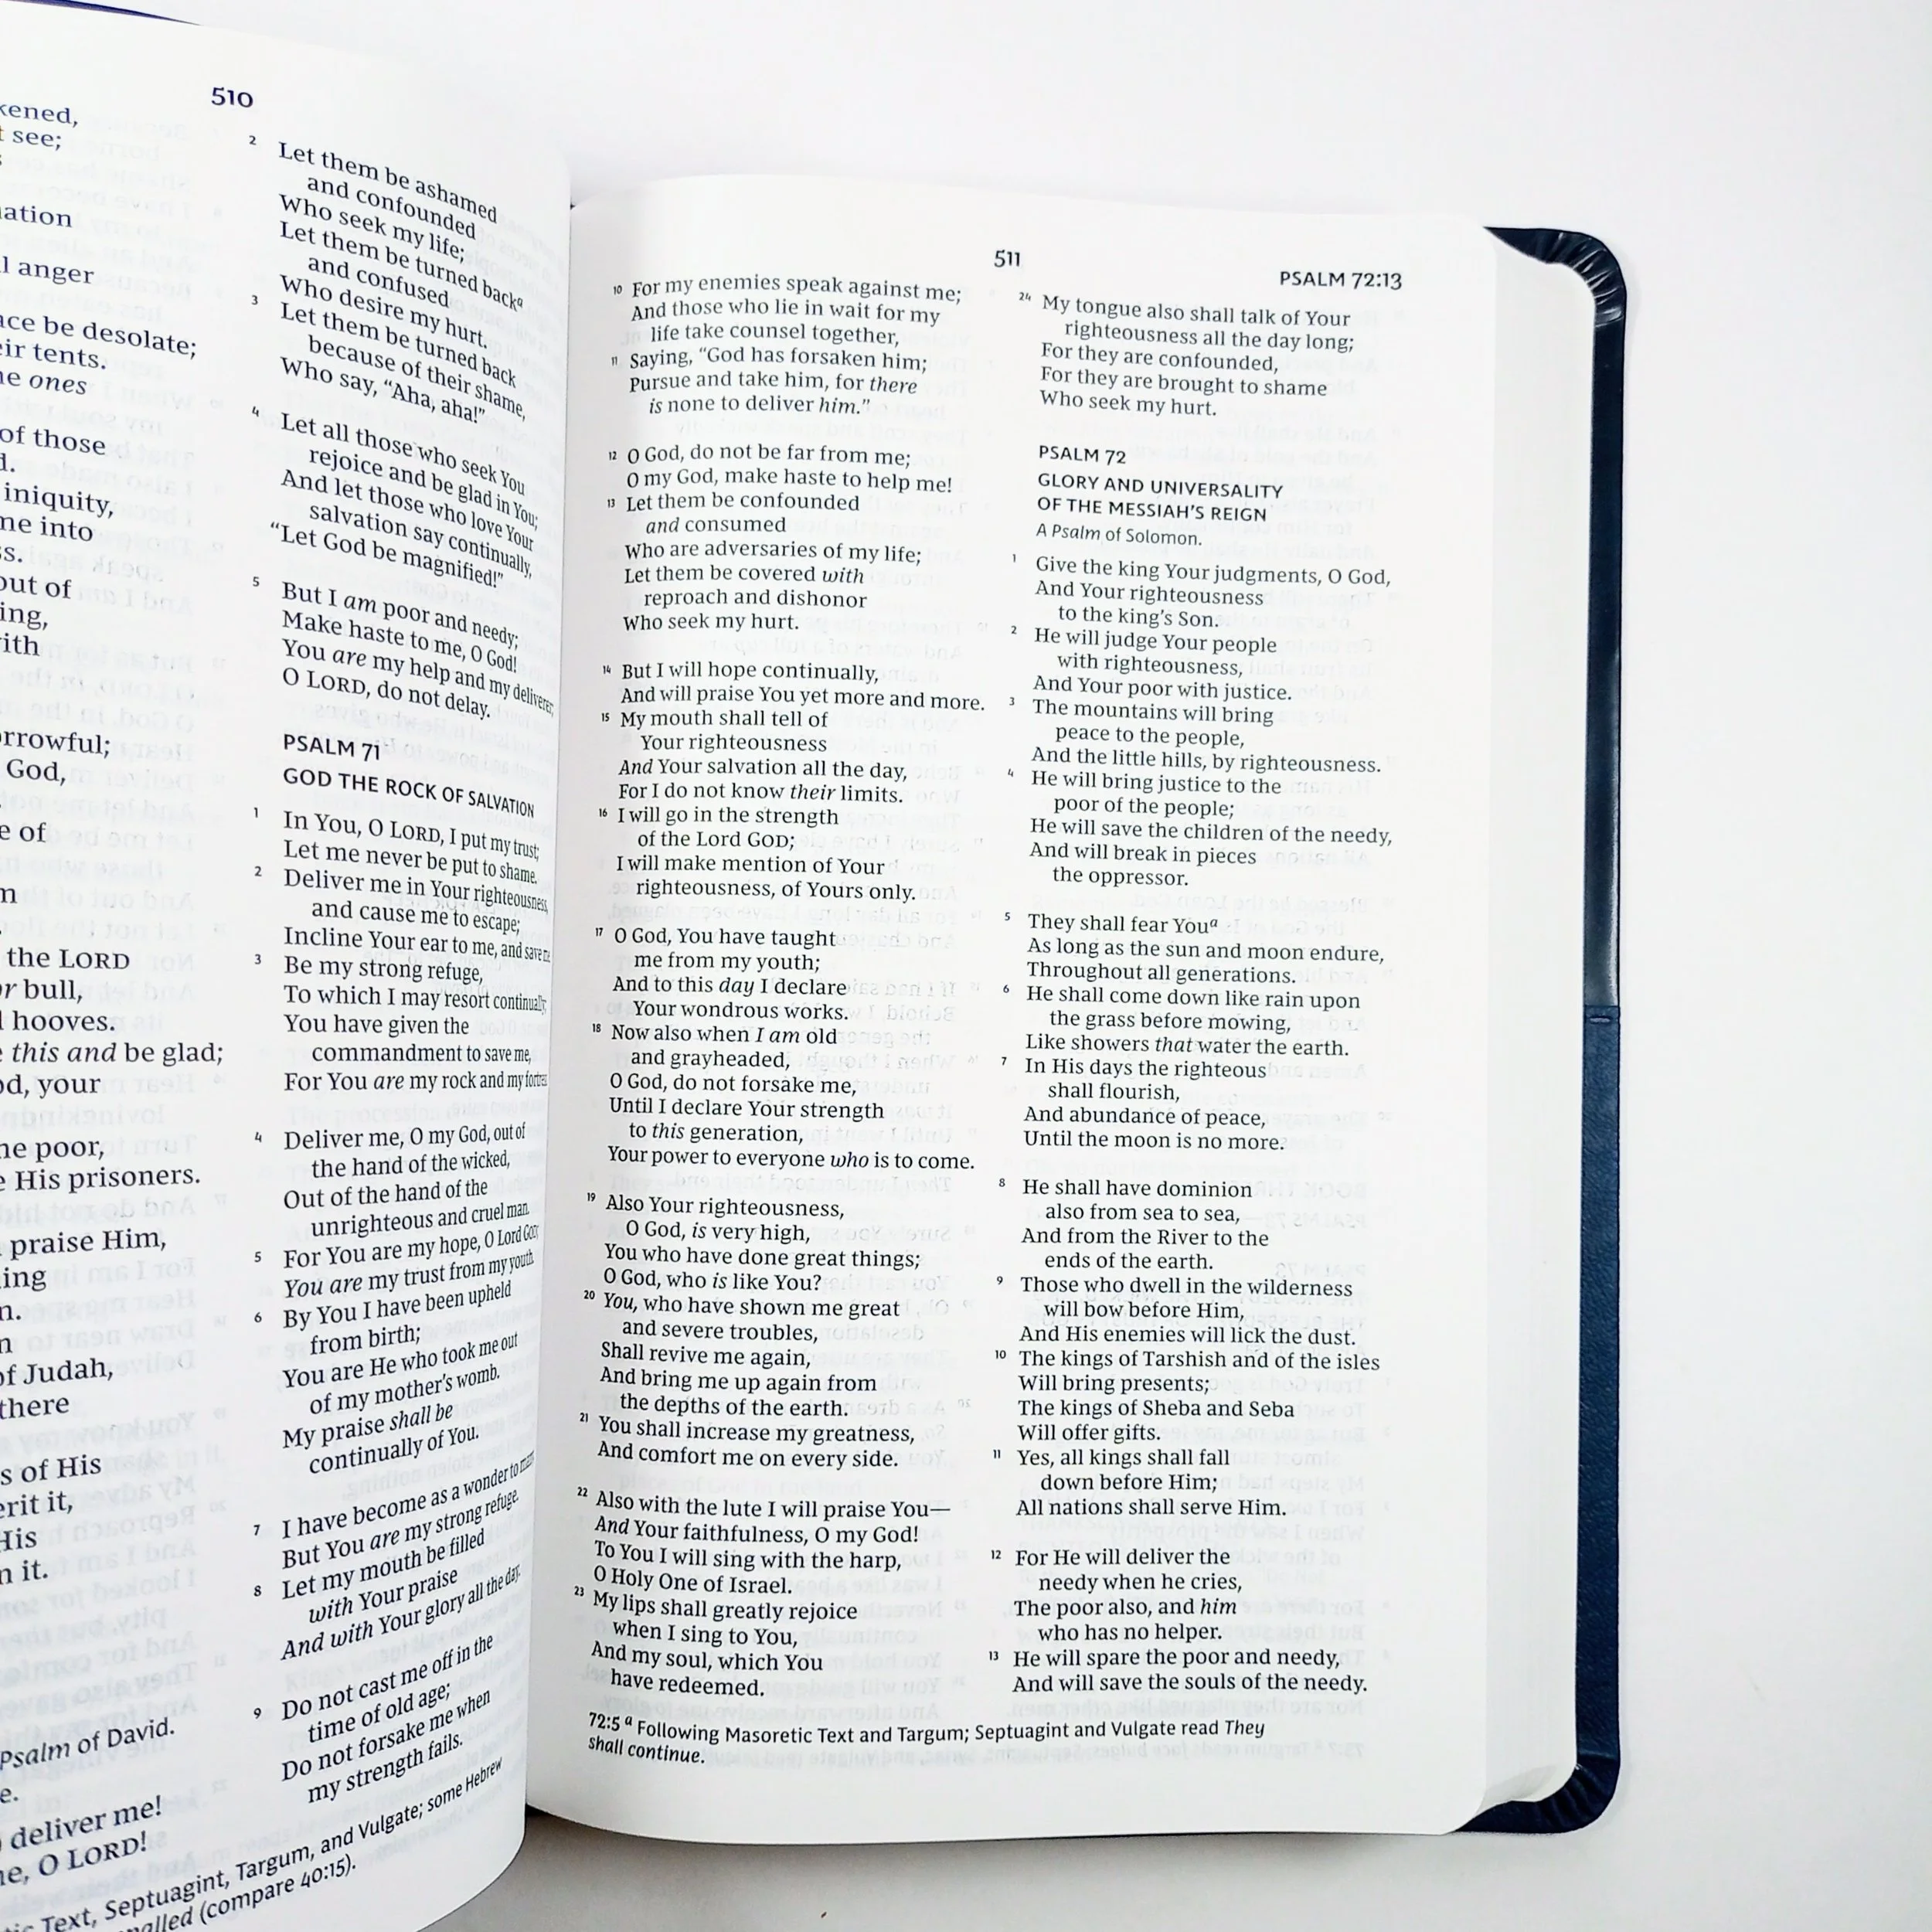 510
kened,
t see;
ation
l anger
ace be desolate;
eir tents.
ne ones
of those
d.
iniquity,
me into
ss.
out of
ing,
ith
orrowful;
God,
e of
m
the LORD
or bull,
d hooves.
e this and be glad;
od, your
ne poor,
e His prisoners.
praise Him,
ing
n.
n
of Judah,
there
s of His
erit it,
His
n it.
Psalm of David.
e.
deliver me!
ne, O LORD!
2 Let them be ashamed
and confounded
Who seek my life;
Let them be turned backa
and confused
Who desire my hurt.
3 Let them be turned back
because of their shame,
Who say, “Aha, aha!”
4 Let all those who seek You
rejoice and be glad in You;
And let those who love Your
salvation say continually,
“Let God be magnified!”
5 But I am poor and needy;
Make haste to me, O God!
You are my help and my deliverer;
O LORD, do not delay.
PSALM 71
GOD THE ROCK OF SALVATION
1 In You, O LORD, I put my trust;
Let me never be put to shame.
2 Deliver me in Your righteousness,
and cause me to escape;
Incline Your ear to me, and save me.
3 Be my strong refuge,
To which I may resort continually;
You have given the
commandment to save me,
For You are my rock and my fortress.
4 Deliver me, O my God, out of
the hand of the wicked,
Out of the hand of the
unrighteous and cruel man.
5 For You are my hope, O Lord GOD;
You are my trust from my youth.
6 By You I have been upheld
from birth;
You are He who took me out
of my mother's womb.
My praise shall be
continually of You.
7 I have become as a wonder to many,
But You are my strong refuge.
8 Let my mouth be filled
with Your praise
And with Your glory all the day.
9 Do not cast me off in the
time of old age;
Do not forsake me when
my strength fails.
Text, Septuagint, Targum, and Vulgate; some Hebrew
(compare 40:15).
511
PSALM 72:13
10 For my enemies speak against me;
And those who lie in wait for my
life take counsel together,
11 Saying, “God has forsaken him;
Pursue and take him, for there
is none to deliver him.”
12 O God, do not be far from me;
O my God, make haste to help me!
13 Let them be confounded
and consumed
Who are adversaries of my life;
Let them be covered with
reproach and dishonor
Who seek my hurt.
14 But I will hope continually,
And will praise You yet more and more.
15 My mouth shall tell of
Your righteousness
And Your salvation all the day,
For I do not know their limits.
16 I will go in the strength
of the Lord GOD;
I will make mention of Your
righteousness, of Yours only.
17 O God, You have taught
me from my youth;
And to this day I declare
Your wondrous works.
18 Now also when I am old
and grayheaded,
O God, do not forsake me,
Until I declare Your strength
to this generation,
Your power to everyone who is to come.
19 Also Your righteousness,
O God, is very high,
You who have done great things;
O God, who is like You?
20 You, who have shown me great
and severe troubles,
Shall revive me again,
And bring me up again from
the depths of the earth.
21 You shall increase my greatness,
And comfort me on every side.
22 Also with the lute I will praise You—
And Your faithfulness, O my God!
To You I will sing with the harp,
O Holy One of Israel.
23 My lips shall greatly rejoice
when I sing to You,
And my soul, which You
have redeemed.
24 My tongue also shall talk of Your
righteousness all the day long;
For they are confounded,
For they are brought to shame
Who seek my hurt.
PSALM 72
GLORY AND UNIVERSALITY
OF THE MESSIAH'S REIGN
A Psalm of Solomon.
1 Give the king Your judgments, O God,
And Your righteousness
to the king's Son.
2 He will judge Your people
with righteousness,
And Your poor with justice.
3 The mountains will bring
peace to the people,
And the little hills, by righteousness.
4 He will bring justice to the
poor of the people;
He will save the children of the needy,
And will break in pieces
the oppressor.
5 They shall fear Youa
As long as the sun and moon endure,
Throughout all generations.
6 He shall come down like rain upon
the grass before mowing,
Like showers that water the earth.
7 In His days the righteous
shall flourish,
And abundance of peace,
Until the moon is no more.
8 He shall have dominion
also from sea to sea,
And from the River to the
ends of the earth.
9 Those who dwell in the wilderness
will bow before Him,
And His enemies will lick the dust.
10 The kings of Tarshish and of the isles
Will bring presents;
The kings of Sheba and Seba
Will offer gifts.
11 Yes, all kings shall fall
down before Him;
All nations shall serve Him.
12 For He will deliver the
needy when he cries,
The poor also, and him
who has no helper.
13 He will spare the poor and needy,
And will save the souls of the needy.
72:5 a Following Masoretic Text and Targum; Septuagint and Vulgate read They
shall continue.